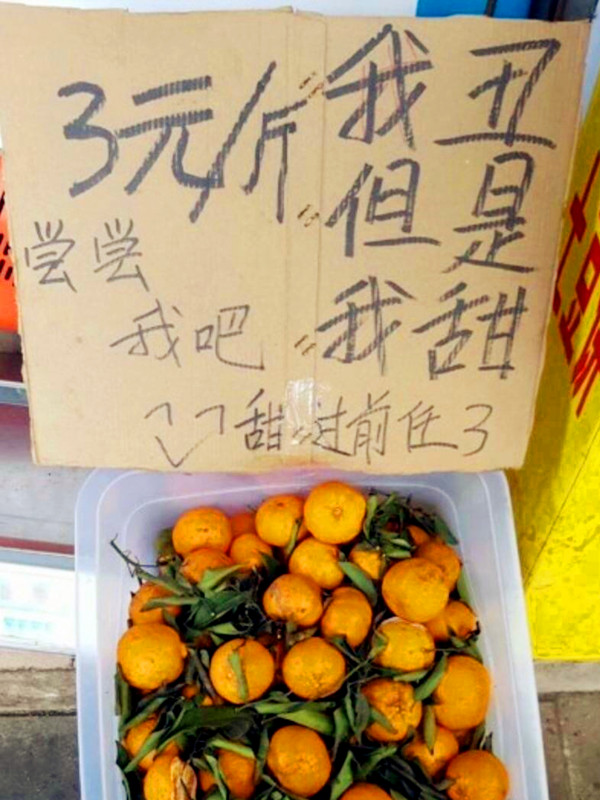 3元/斤
我丑
但是
我甜
尝尝
我吧
甜过前任3